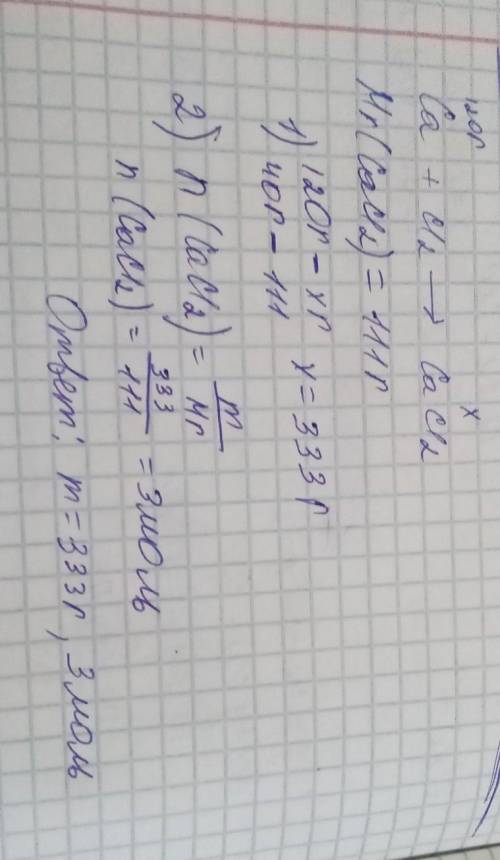 120г x
Ca + Cl₂ → CaCl₂
Mr(CaCl₂) = 111г
1) 120г – xг x = 333г
40г – 111
2) n(CaCl₂) = m/Mr
n(CaCl₂) = 333/111 = 3моль
Ответ: m = 333г, 3 моль